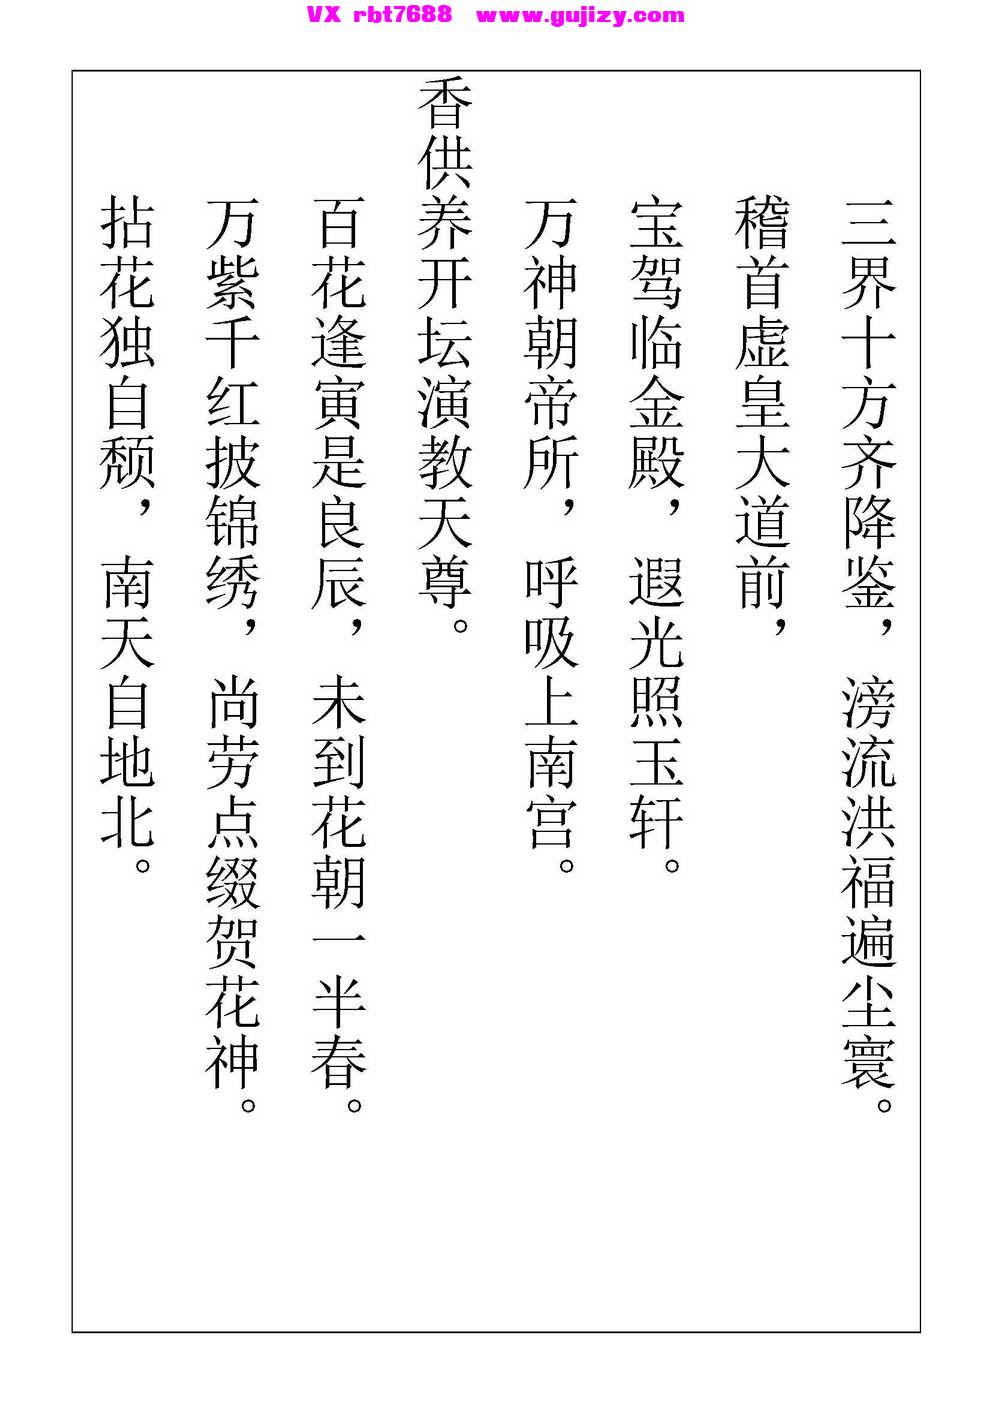 VX rbt7688 www.gujizy.com
三界十方齐降鉴，滂流洪福遍尘寰。
稽首虚皇大道前，
宝驾临金殿，遐光照玉轩。
万神朝帝所，呼吸上南宫。
香供养开坛演教天尊。
百花逢寅是良辰，未到花朝一半春。
万紫千红披锦绣，尚劳点缀贺花神。
拈花独自颓，南天自地北。